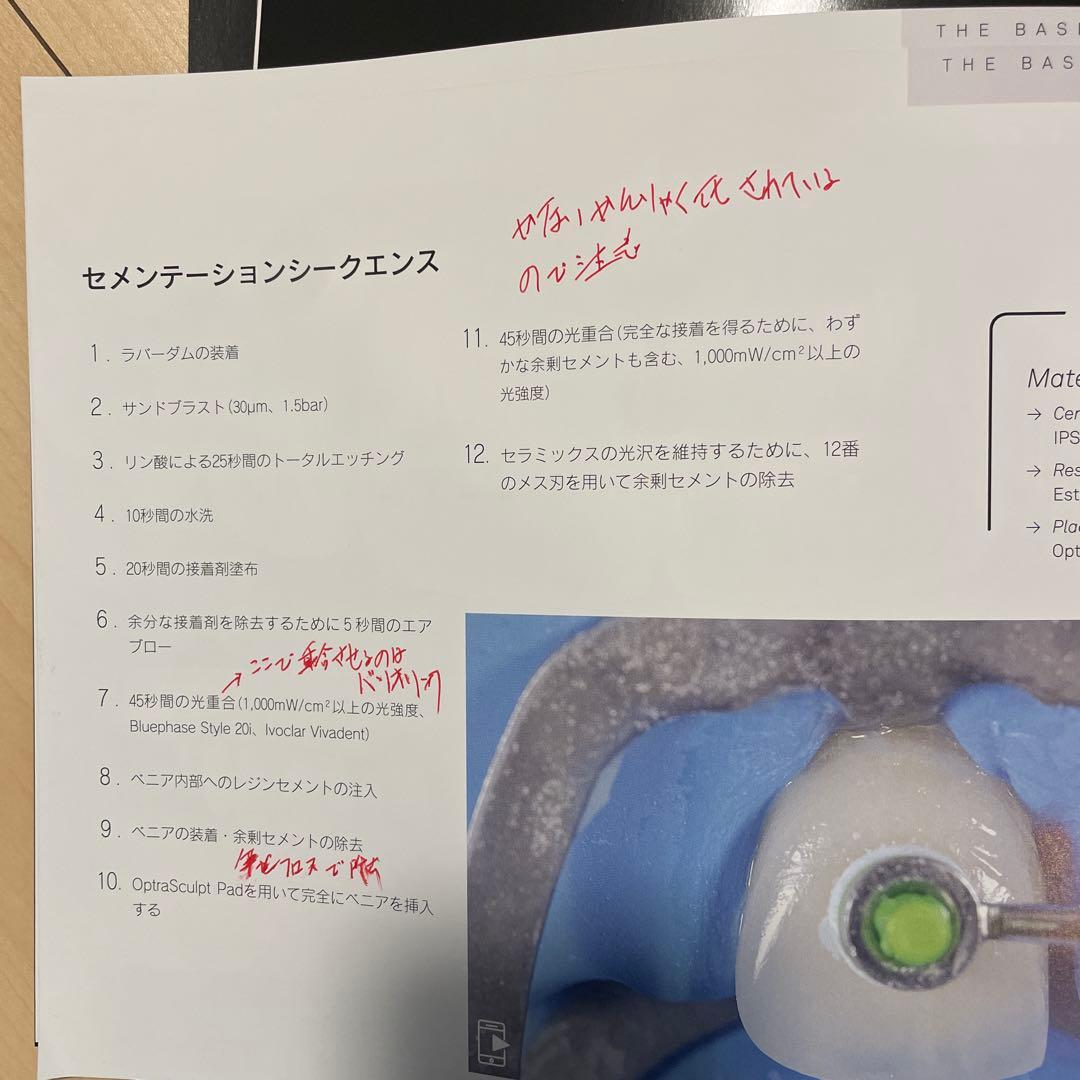 THE BASI
THE BAS
されている
ので注意
セメンテーションシークエンス
1. ラバーダムの装着
2. サンドブラスト(30μm、1.5bar)
3. リン酸による25秒間のトータルエッチング
4. 10秒間の水洗
5. 20秒間の接着剤塗布
6. 余分な接着剤を除去するために5秒間のエア
ブロー
ここで重合させるのは
7. 45秒間の光重合(1,000mW/cm²以上の光強度、
Bluephase Style 20i、Ivoclar Vivadent)
8. ベニア内部へのレジンセメントの注入
9. ベニアの装着・余剰セメントの除去
フロスで除去
10. OptraSculpt Padを用いて完全にベニアを挿入
する
11. 45秒間の光重合(完全な接着を得るために、わず
かな余剰セメントも含む、1,000mW/cm²以上の
光強度)
12. セラミックスの光沢を維持するために、12番
のメス刃を用いて余剰セメントの除去
Mate
→ Cer
IPS
→ Res
Est
→ Pla
Opt